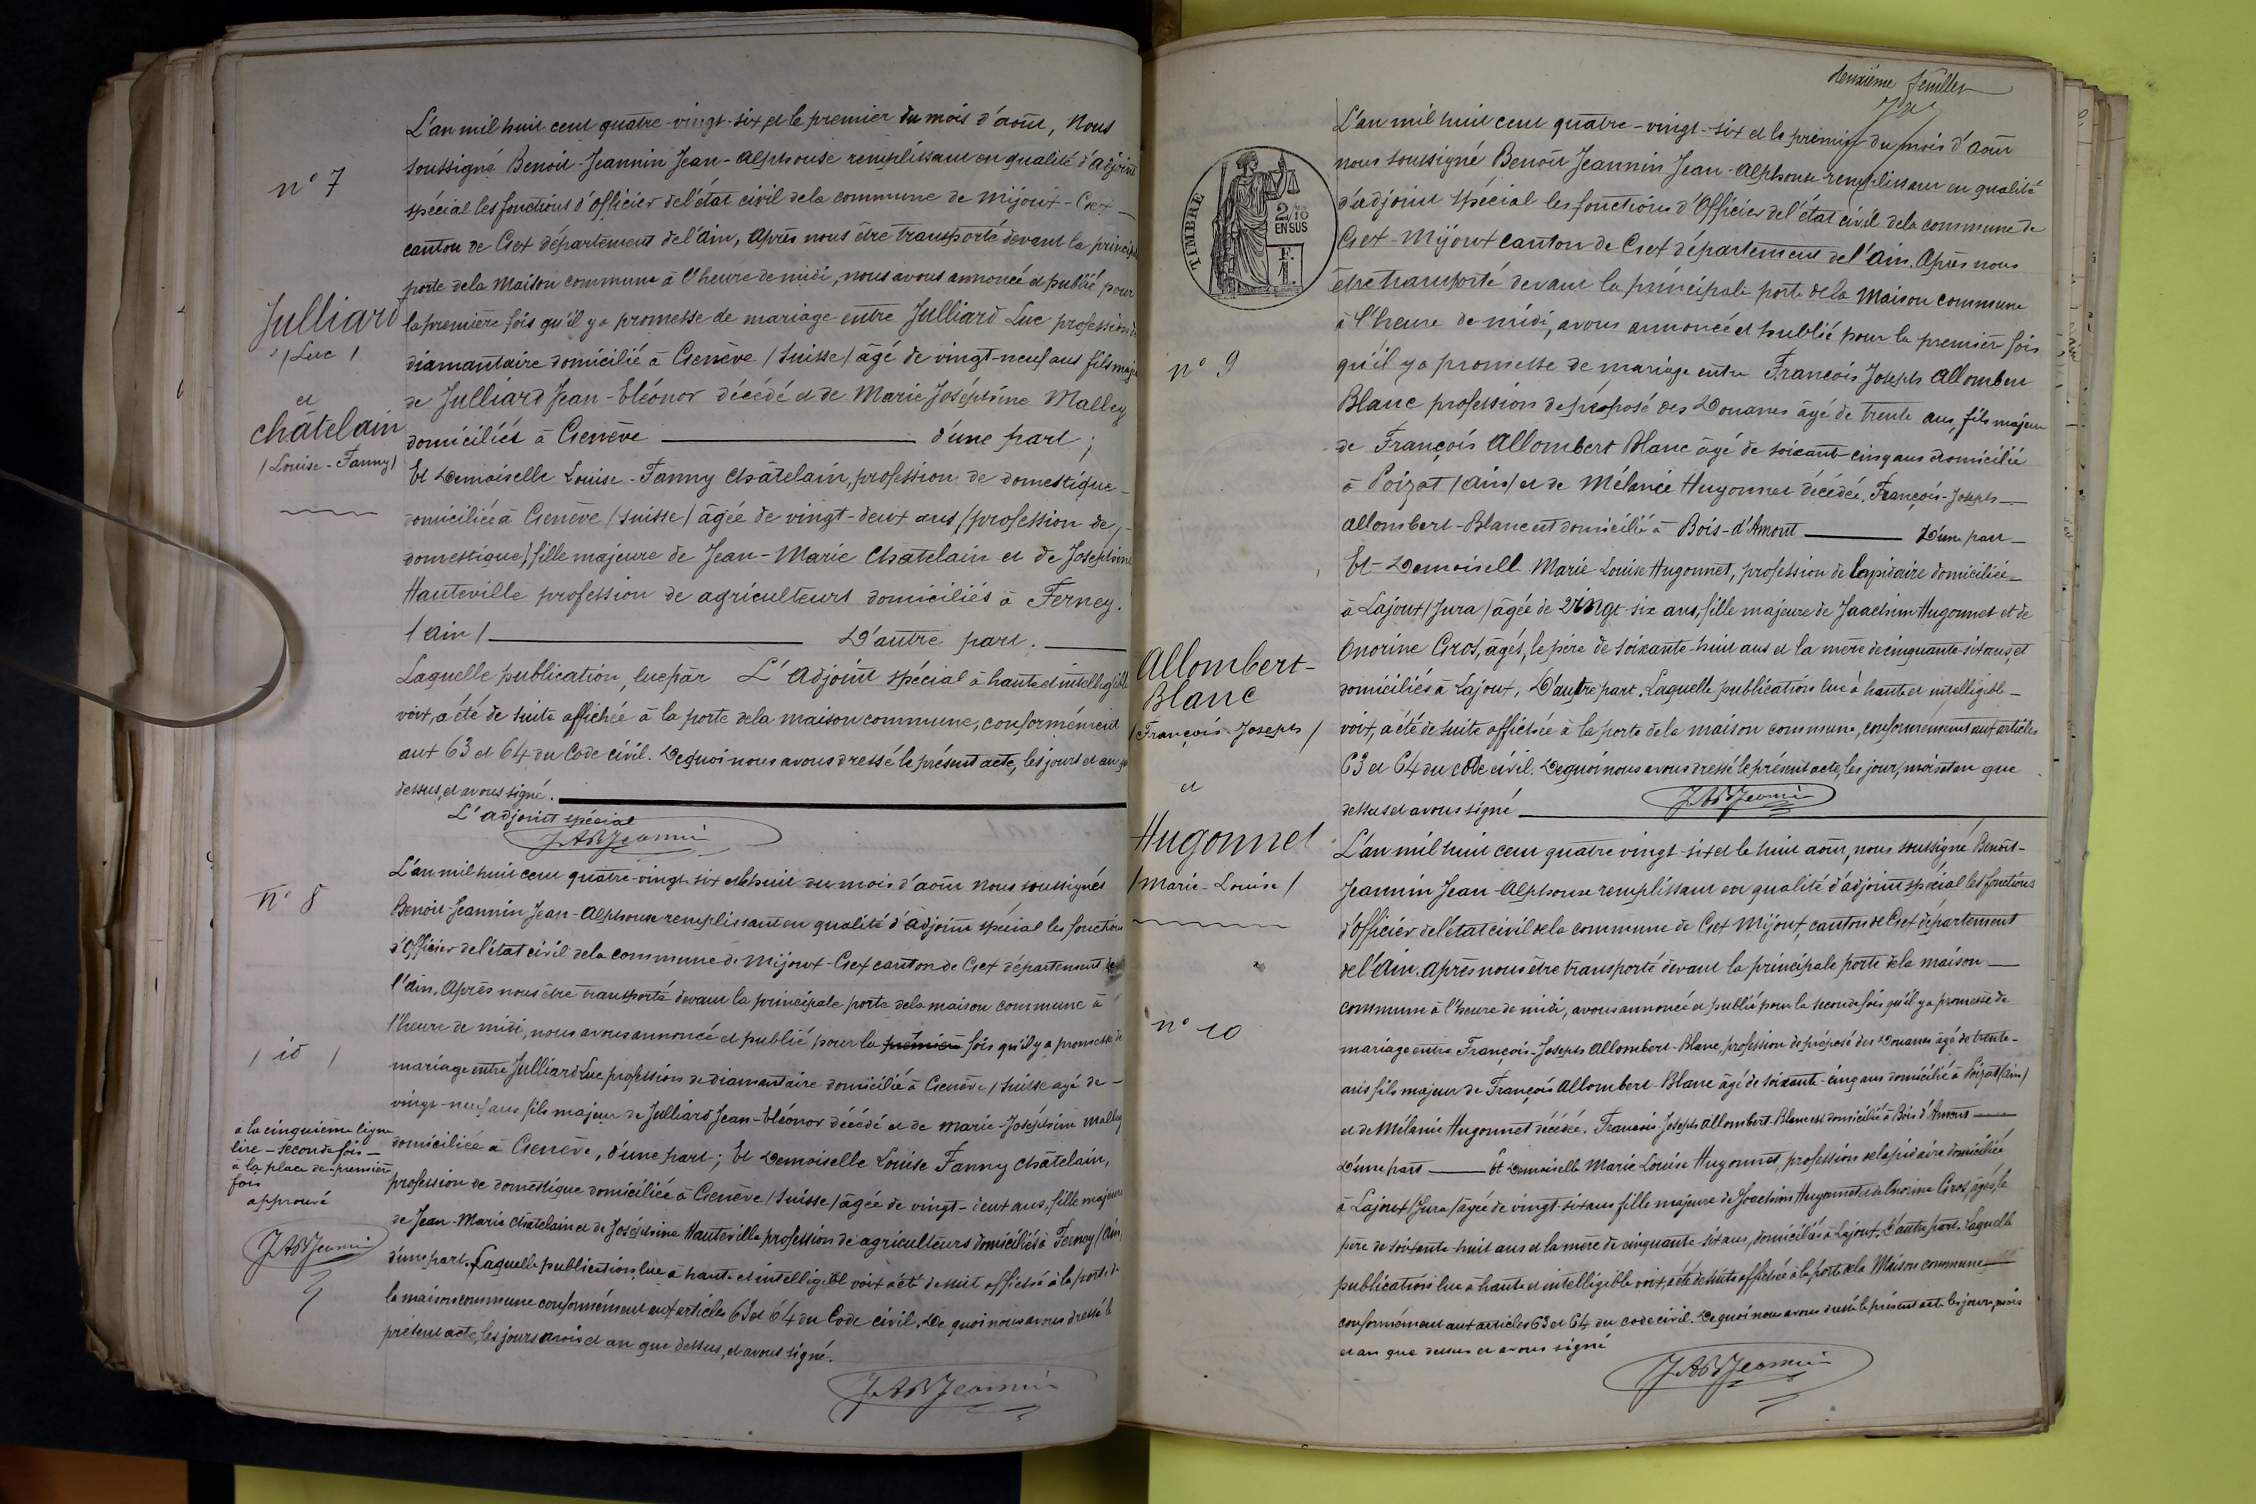 n° 7
Julliard
/ Luc /
et
châtelain
/ Louise-Fanny /
L'an mil huit cent quatre-vingt-six et le premier du mois d'août, Nous
soussigné Benoit-Jeannin Jean-Alphonse remplissant en qualité d'Adjoint
spécial les fonctions d'Officier de l'état civil de la commune de Mijoux-Gex
canton de Gex département de l'Ain, Après nous être transporté devant la principale
porte de la Maison commune à l'heure de midi, nous avons annoncé et publié pour
la première fois qu'il y a promesse de mariage entre Julliard Luc profession de
diamantaire domicilié à Genève / Suisse / âgé de vingt-neuf ans fils majeur
de Julliard Jean-Eléonor décédé et de Marie Joséphine Malley
domiciliés à Genève d'une part ;
Et Demoiselle Louise-Fanny Châtelain, profession de domestique
domiciliée à Genève / Suisse / âgée de vingt-deux ans, (profession de
domestique) fille majeure de Jean-Marie Chatelain et de Josephine
Hauteville profession de agriculteurs domiciliés à Ferney.
/ Ain / D'autre part.
Laquelle publication, lue par L'Adjoint spécial à haute et intelligible
voix, a été de suite affichée à la porte de la maison commune, conformément
aux 63 et 64 du Code civil. De quoi nous avons dressé le présent acte, les jours et an que
dessus, et avons signé.
L'adjoint spécial
JABJeannin
n° 8
/ id /
à la cinquième ligne
lire - seconde fois -
à la place de - première
fois
approuvé
JABJeannin
L'an mil huit cent quatre-vingt-six et le huit du mois d'août nous soussignés
Benoit-Jeannin Jean-Alphonse remplissant en qualité d'adjoint spécial les fonctions
d'Officier de l'état civil de la commune de Mijoux-Gex canton de Gex département de
l'Ain. Après nous être transporté devant la principale porte de la maison commune à
l'heure de midi, nous avons annoncé et publié pour la première fois qu'il y a promesse de
mariage entre Julliard Luc profession de diamantaire domicilié à Genève / Suisse âgé de
vingt-neuf ans fils majeur de Julliard Jean-Eléonor décédé et de Marie-Joséphine Malley
domiciliée à Genève, d'une part; Et Demoiselle Louise Fanny Châtelain,
profession de domestique domiciliée à Genève / Suisse / âgée de vingt-deux ans, fille majeure
de Jean-Marie Châtelain et de Joséphine Hauteville profession de agriculteurs domiciliés à Ferney / Ain
d'une part. Laquelle publication lue à haute et intelligible voix a été de suite affichée à la porte de
la maison commune conformément aux articles 63 et 64 du Code civil. De quoi nous avons dressé le
présent acte, les jours mois et an que dessus, et avons signé.
JABJeannin
deuxième feuillet
TIMBRE
2/10
EN SUS
F.
1.
n° 9
Allombert-
Blanc
/ François-Joseph /
et
Hugonnet
/ Marie-Louise /
L'an mil huit cent quatre-vingt-six et le premier du mois d'août
nous soussigné Benoît Jeannin Jean-Alphonse remplissant en qualité
d'adjoint spécial les fonctions d'Officier de l'état civil de la commune de
Gex-Mijoux canton de Gex département de l'Ain. Après nous
être transporté devant la principale porte de la Maison commune
à l'heure de midi, avons annoncé et publié pour la premier fois
qu'il y a promesse de mariage entre François Joseph Allombert
Blanc profession de préposé des Douanes âgé de trente ans, fils majeur
de François Allombert Blanc âgé de soixante-cinq ans domicilié
à Poizat / Ain / et de Mélanie Hugonnet décédée. François-Joseph
Allombert-Blanc est domicilié à Bois-d'Amont D'une part
Et Demoiselle Marie-Louise Hugonnet, profession de lapidaire domiciliée
à Lajoux / Jura / âgée de vingt-six ans, fille majeure de Joachim Hugonnet et de
Onorine Gros, âgés, le père de soixante-huit ans et la mère de cinquante-six ans, et
domiciliés à Lajoux, D'autre part. Laquelle publication lue à haute et intelligible
voix, a été de suite affichée à la porte de la maison commune, conformément aux articles
63 et 64 du code civil. De quoi nous avons dressé le présent acte, les jour, mois et an que
dessus et avons signé
JABJeannin
n° 10
L'an mil huit cent quatre vingt-six et le huit août, nous soussigné Benoît-
Jeannin Jean-Alphonse remplissant en qualité d'adjoint spécial les fonctions
d'Officier de l'état civil de la commune de Gex Mijoux, canton de Gex département
de l'Ain. Après nous être transporté devant la principale porte de la maison
commune à l'heure de midi, avons annoncé et publié pour la seconde fois qu'il y a promesse de
mariage entre François-Joseph Allombert-Blanc, profession de préposé des Douanes âgé de trente-
ans fils majeur de François Allombert-Blanc âgé de soixante-cinq ans domicilié à Poizat (Ain)
et de Mélanie Hugonnet décédée. François-Joseph Allombert-Blanc est domicilié à Bois d'Amont
D'une part Et Demoiselle Marie Louise Hugonnet, profession de lapidaire domiciliée
à Lajoux / Jura / âgée de vingt-six ans fille majeure de Joachim Hugonnet et de Onorine Gros, âgés, le
père de soixante-huit ans et la mère de cinquante-six ans, domiciliés à Lajoux, D'autre part. Laquelle
publication lue à haute et intelligible voix, a été de suite affichée à la porte de la Maison commune
conformément aux articles 63 et 64 du code civil. De quoi nous avons dressé le présent acte les jours, mois
et an que dessus et avons signé
JABJeannin